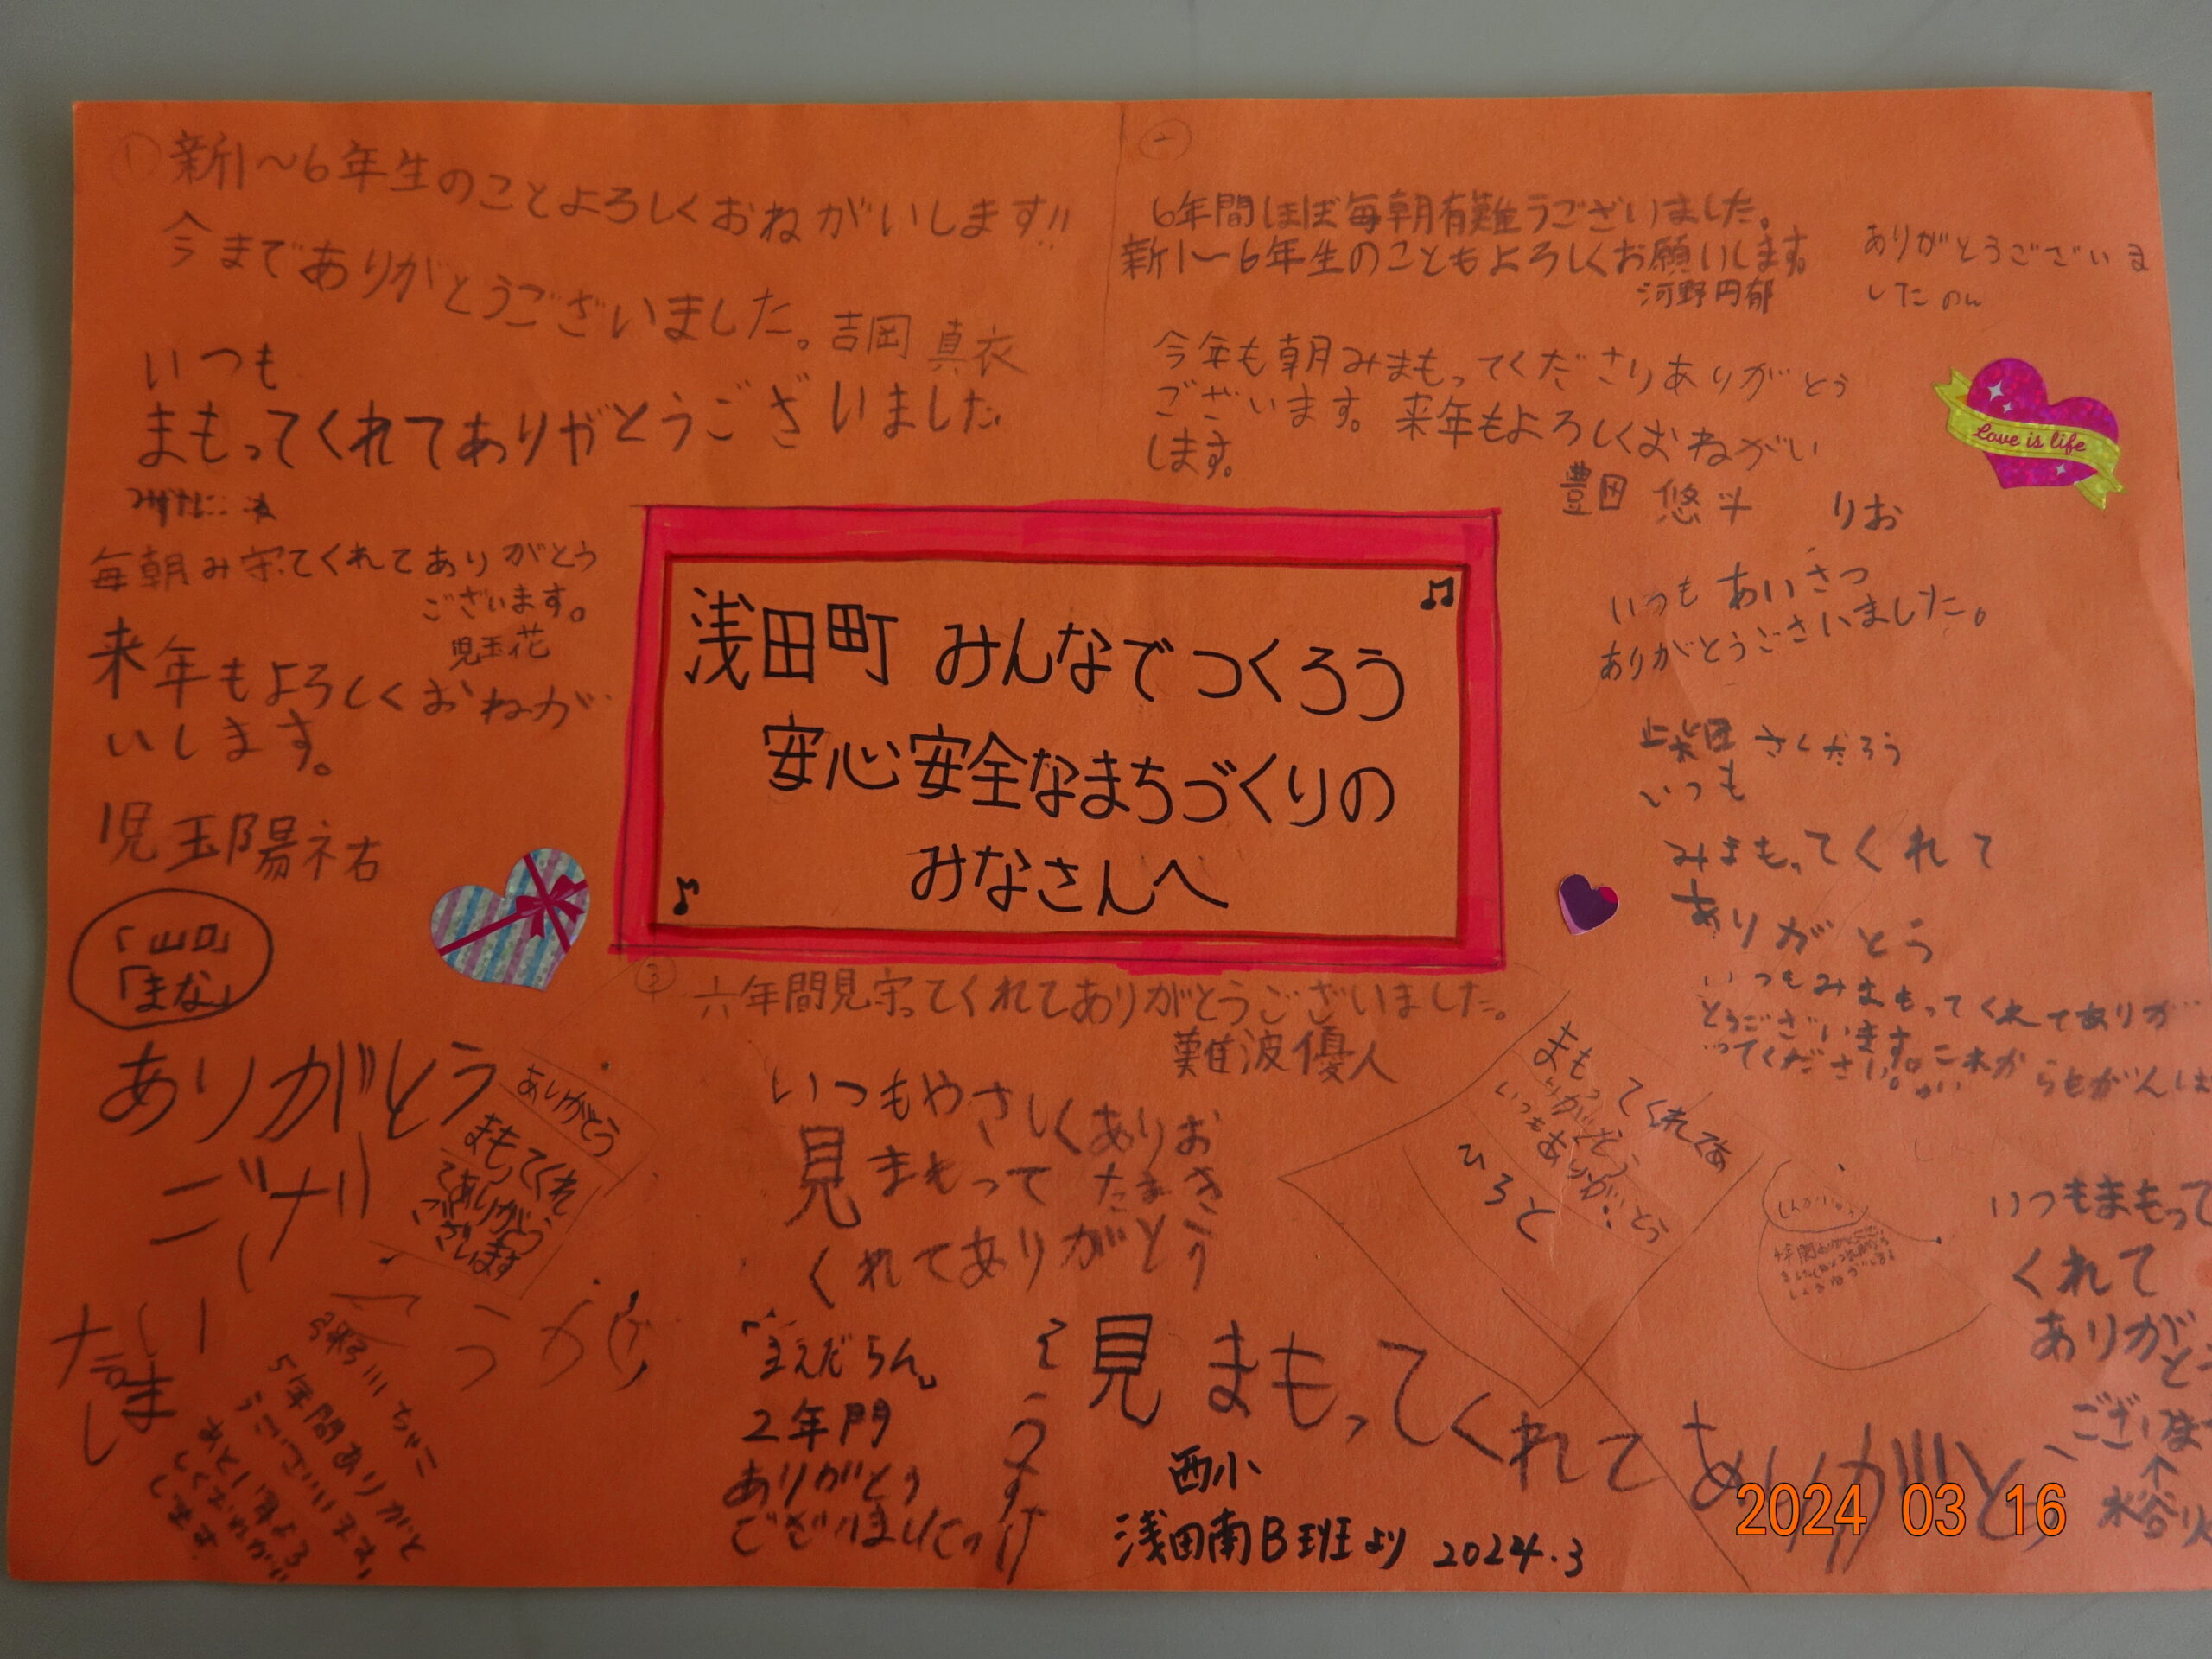 ① 新1～6年生のことよろしくおねがいします!!
今までありがとうございました。吉岡 真衣
いつも
まもってくれてありがとうございました
毎朝み守てくれてありがとう
ございます。
児玉花
来年もよろしくおねが
いします。
児玉陽祐
「山口」
「まな」
ありがとう
ありがとう
まもてくれ
てありがとう
ございます
5年間ありがと
うございます
一
6年間ほぼ毎朝有難うございました。
新1～6年生のこともよろしくお願いします
河野円郁
ありがとうございま
した のん
今年も朝みまもってくださりありがとう
ございます。来年もよろしくおねがい
します。
豊田 悠斗
りお
Love is life
いつも あいさつ
ありがとうごさいました。
柴田 さくたろう
いつも
みまもってくれて
ありがとう
いつもみまもってくれてありが
とうございます。これか らもがんば
ってください。
浅田町 みんなでつくろう
安心安全なまちづくりの
みなさんへ
③ 六年間見守ってくれてありがとうございました。
難波優人
いつもやさしく
見まもって
くれてありがとう
ありお
たまき
2年門
ありがとう
ございました
まもってくれてあ
りがとう
いつもありがとう
ひろと
見まもってくれて ありがとう
いつもまもって
くれて
ありがと
西小
浅田南B班より 2024.3
2024 03 16